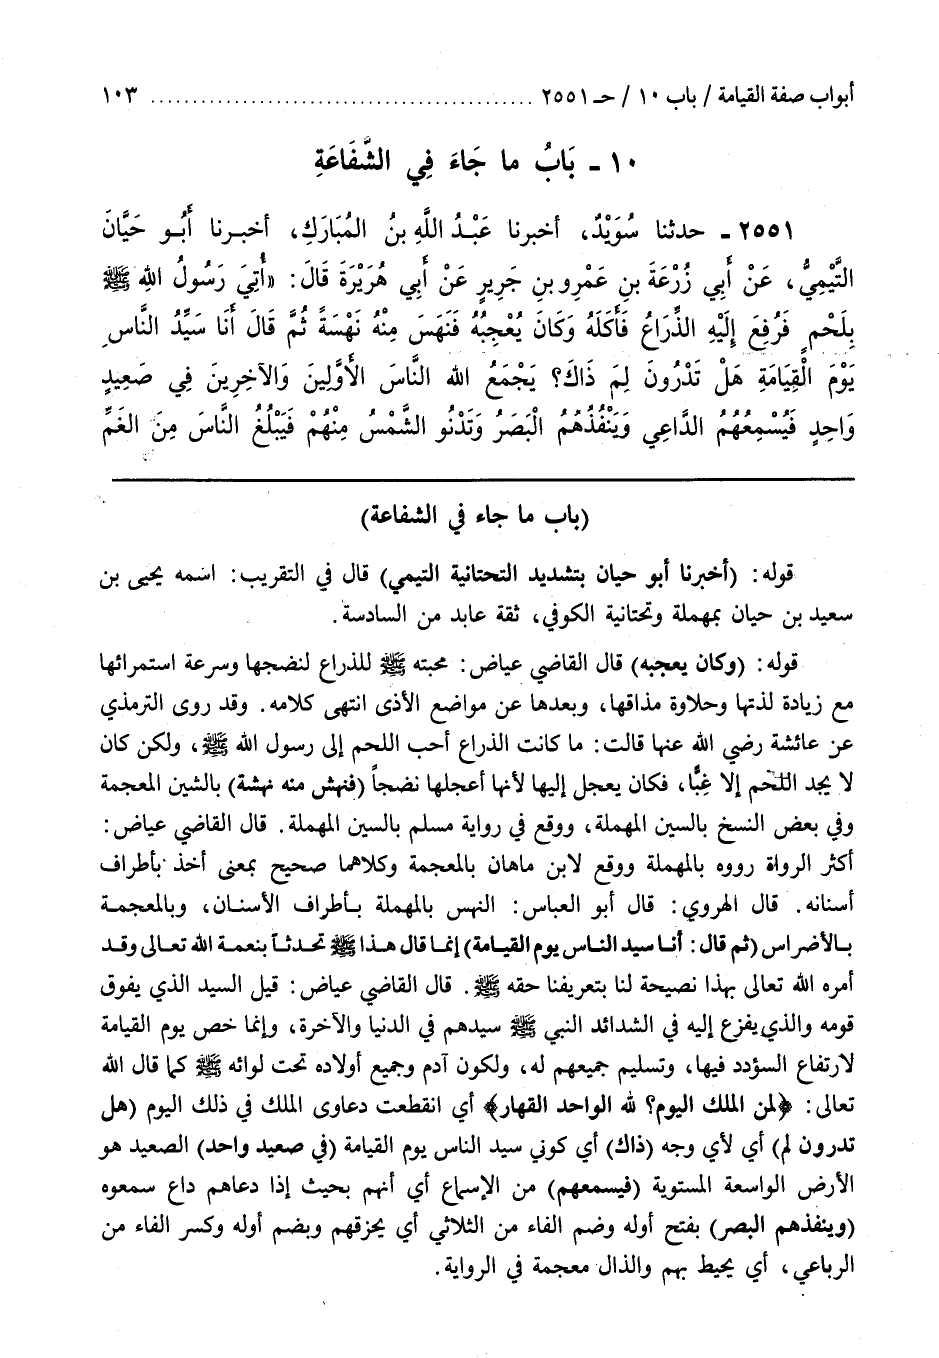 أبواب صفة القيامة / باب ١٠ / حـ ٢٥٥١ ............................................. ١٠٣
١٠ ـ بَابُ ما جَاءَ فِي الشَّفَاعَةِ
٢٥٥١ ـ حدثنا سُوَيْدٌ، أخبرنا عَبْدُ اللَّهِ بنُ المُبَارَكِ، أخبرنا أَبُو حَيَّانَ
التَّيْمِيُّ، عَنْ أَبِي زُرْعَةَ بنِ عَمْرِو بنِ جَرِيرٍ عَنْ أَبِي هُرَيْرَةَ قَالَ: «أُتِيَ رَسُولُ اللهِ ﷺ
بِلَحْمٍ فَرُفِعَ إِلَيْهِ الذِّرَاعُ فَأَكَلَهُ وَكَانَ يُعْجِبُهُ فَنَهَسَ مِنْهُ نَهْسَةً ثُمَّ قَالَ أَنَا سَيِّدُ النَّاسِ
يَوْمَ الْقِيَامَةِ هَلْ تَدْرُونَ لِمَ ذَاكَ؟ يَجْمَعُ الله النَّاسَ الأَوَّلِينَ وَالآخِرِينَ فِي صَعِيدٍ
وَاحِدٍ فَيُسْمِعُهُمُ الدَّاعِي وَيَنْفُذُهُمُ الْبَصَرُ وَتَدْنُو الشَّمْسُ مِنْهُمْ فَيَبْلُغُ النَّاسَ مِنَ الغَمِّ
(باب ما جاء في الشفاعة)
قوله: (أخبرنا أبو حيان بتشديد التحتانية التيمي) قال في التقريب: اسمه يحيى بن
سعيد بن حيان بمهملة وتحتانية الكوفي، ثقة عابد من السادسة.
قوله: (وكان يعجبه) قال القاضي عياض: محبته ﷺ للذراع لنضجها وسرعة استمرائها
مع زيادة لذتها وحلاوة مذاقها، وبعدها عن مواضع الأذى انتهى كلامه. وقد روى الترمذي
عن عائشة رضي الله عنها قالت: ما كانت الذراع أحب اللحم إلى رسول الله ﷺ، ولكن كان
لا يجد اللحم إلا غِبًّا، فكان يعجل إليها لأنها أعجلها نضجاً (فنهش منه نهشة) بالشين المعجمة
وفي بعض النسخ بالسين المهملة، ووقع في رواية مسلم بالسين المهملة. قال القاضي عياض:
أكثر الرواة رووه بالمهملة ووقع لابن ماهان بالمعجمة وكلاهما صحيح بمعنى أخذ بأطراف
أسنانه. قال الهروي: قال أبو العباس: النهس بالمهملة بأطراف الأسنان، وبالمعجمة
بالأضراس (ثم قال: أنا سيد الناس يوم القيامة) إنما قال هذا ﷺ تحدثاً بنعمة الله تعالى وقد
أمره الله تعالى بهذا نصيحة لنا بتعريفنا حقه ﷺ. قال القاضي عياض: قيل السيد الذي يفوق
قومه والذي يفزع إليه في الشدائد النبي ﷺ سيدهم في الدنيا والآخرة، وإنما خص يوم القيامة
لارتفاع السؤدد فيها، وتسليم جميعهم له، ولكون آدم وجميع أولاده تحت لوائه ﷺ كما قال الله
تعالى: ﴿لمن الملك اليوم؟ لله الواحد القهار﴾ أي انقطعت دعاوى الملك في ذلك اليوم (هل
تدرون لم) أي لأي وجه (ذاك) أي كوني سيد الناس يوم القيامة (في صعيد واحد) الصعيد هو
الأرض الواسعة المستوية (فيسمعهم) من الإسماع أي أنهم بحيث إذا دعاهم داع سمعوه
(وينفذهم البصر) بفتح أوله وضم الفاء من الثلاثي أي يخرقهم وبضم أوله وكسر الفاء من
الرباعي، أي يحيط بهم والذال معجمة في الرواية.